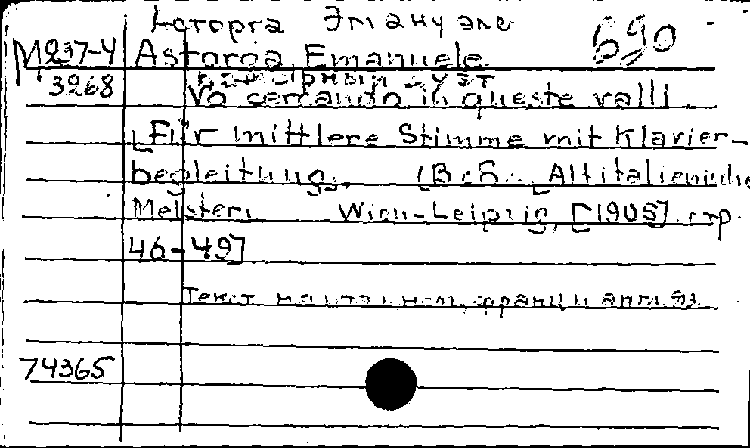 Асторга Эмануэле
690
М237-4 Astorga, Emanuele
3268
Va cercando in queste valli.
[Für mittlere Stimme mit Klavier-
begleitung. (В сб.: Altitalienische
Meister. Wien-Leipzig, [1905] стр.
46-49]
Текст на итал., нем., франц. и англ. яз.
74365